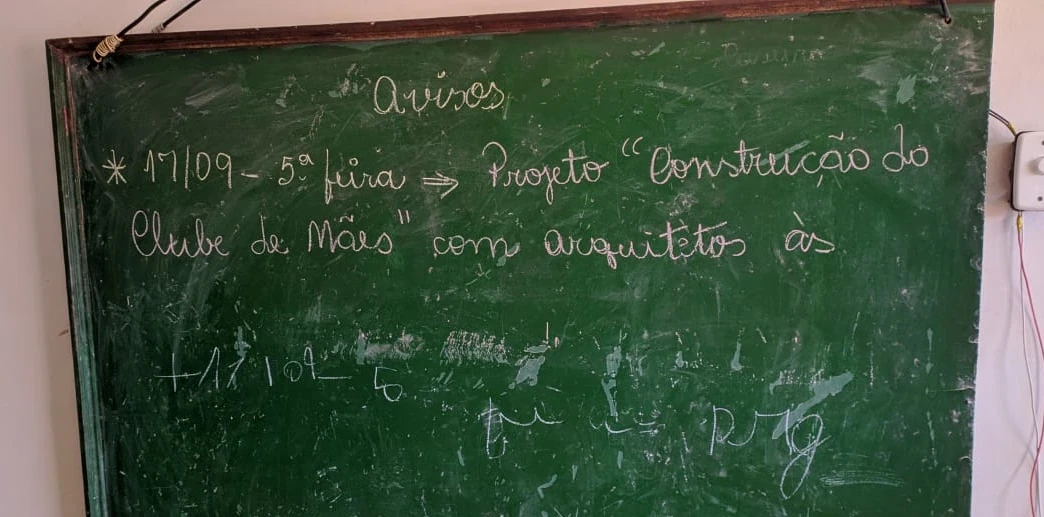 Avisos
* 17/09 - 5ª feira ⇒ Projeto "Construção do
Clube de Mães" com arquitetos às
+ 17/09 - 5